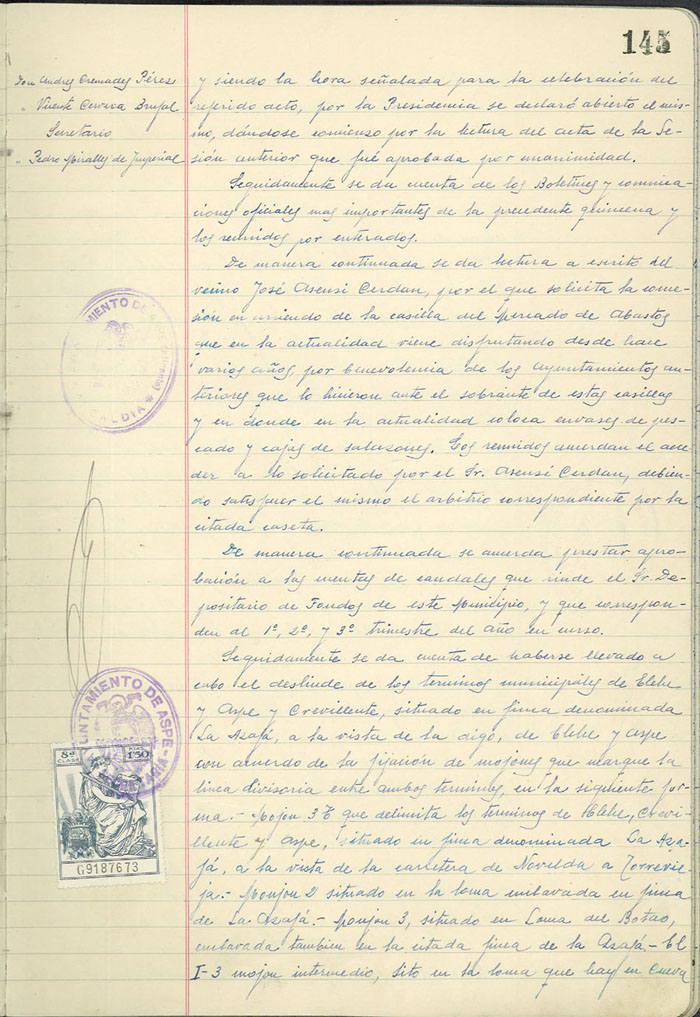 145
Don Andres Cremades Pérez
" Vicente Cervera Brufal
Secretario
" Pedro Miralles de Imperial
y siendo la hora señalada para la celebración del
referido acto, por la Presidencia se declaró abierto el mis-
mo, dándose comienzo por la lectura del acta de la Se-
sión anterior que fué aprobada por unanimidad.
Seguidamente se da cuenta de los Boletines y comunica-
ciones oficiales mas importantes de la precedente quincena y
los reunidos por enterados.
De manera continuada se da lectura a escrito del
vecino José Asensi Cerdan, por el que solicita la conce-
sión en arriendo de la casilla del Mercado de Abastos
que en la actualidad viene disfrutando desde hace
varios años, por benevolencia de los Ayuntamientos an-
teriores que lo hicieron ante el sobrante de estas casillas
y en donde en la actualidad coloca envases de pes-
cado y cajas de salazones. Los reunidos acuerdan el acce-
der a lo solicitado por el Sr. Asensi Cerdan, debien-
do satisfacer el mismo el arbitrio correspondiente por la
citada caseta.
De manera continuada se acuerda prestar apro-
bación a las cuentas de caudales que rinde el Sr. De-
positario de Fondos de este Municipio, y que correspon-
den al 1º, 2º, y 3º trimestre del año en curso.
Seguidamente se da cuenta de haberse llevado a
cabo el deslinde de los terminos municipales de Elche
y Aspe y Crevillente, situado en finca denominada
La Azafá, a la vista de la de Elche y Aspe
con acuerdo de la fijación de mojones que marque la
linea divisoria entre ambos terminos, en la siguiente for-
ma.- Mojon 3 que delimita los terminos de Elche, Crevi-
llente y Aspe, situado en finca denominada La Aza-
fá, a la vista de la carretera de Novelda a Torrevie-
ja.- Monjon 2 situado en la loma enclavada en finca
de La Azafá.- Monjon 3, situado en Loma del
enclavada tambien en la citada finca de la Azafá - El
I-3 mojon intermedio, sito en la loma que hay en Cueva
AYUNTAMIENTO DE
ALCALDIA
AYUNTAMIENTO DE ASPE
8ª CLASE
1'50
G9187673